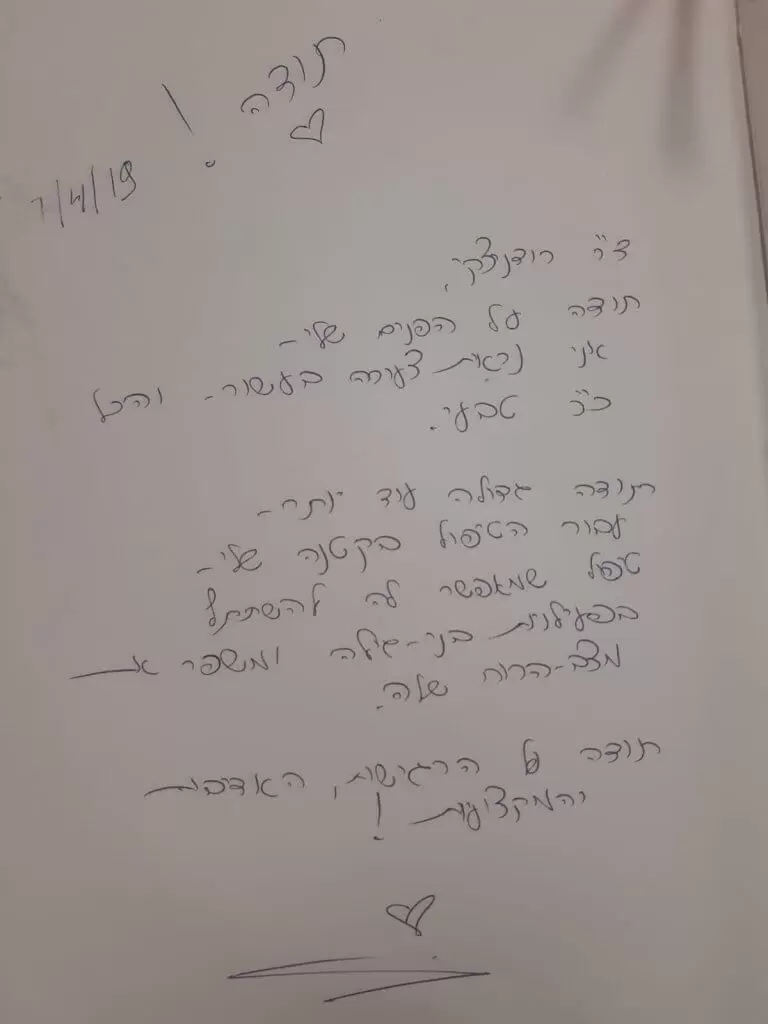 תודה!
♡
1/4/19
ד"ר רודניצקי,
תודה על הפנים שלי -
אני נראית צעירה בעשור - והכל
כ"כ טבעי.
תודה גדולה עוד יותר -
עבור הטיפול בקטנה שלי -
טיפול שמאפשר לה להשתתף
בפעילות בני-גילה ומשפר את
מצב-הרוח שלה.
תודה על הרגישות, האדיבות
והמקצועיות!
♡